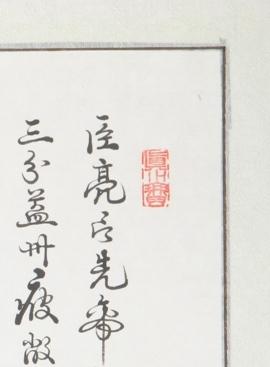 臣亮言先帝
三分益州疲敝